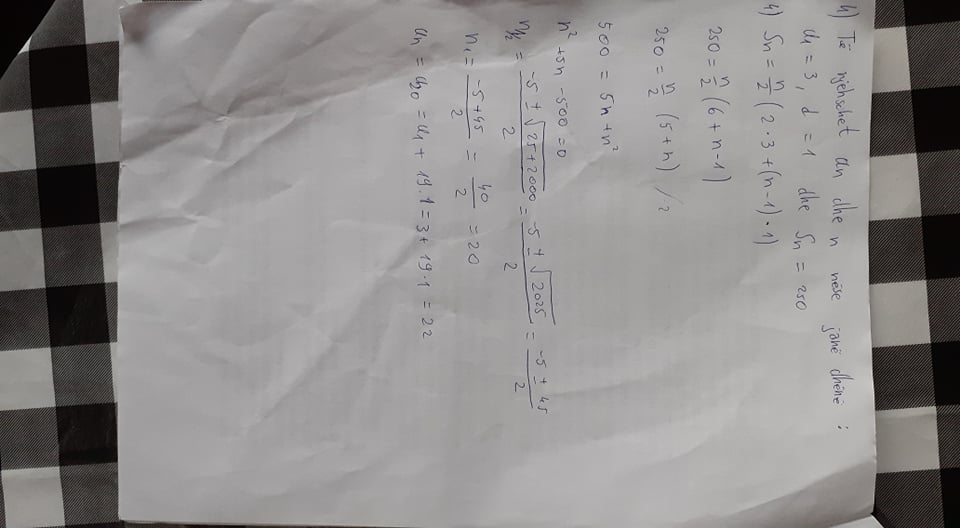 4) Të njehsohet an dhe n nëse janë dhënë :
a1 = 3, d = 1 dhe Sn = 250
4) Sn = n/2 (2·3+(n-1)·1)
250 = n/2 (6+n-1)
250 = n/2 (5+n) /·2
500 = 5n+n²
n²+5n-500=0
n1/2 = (-5±√(25+2000))/2 = (-5±√2025)/2 = (-5±45)/2
n1 = (-5+45)/2 = 40/2 = 20
an = a20 = a1 + 19·1 = 3+ 19·1 = 22